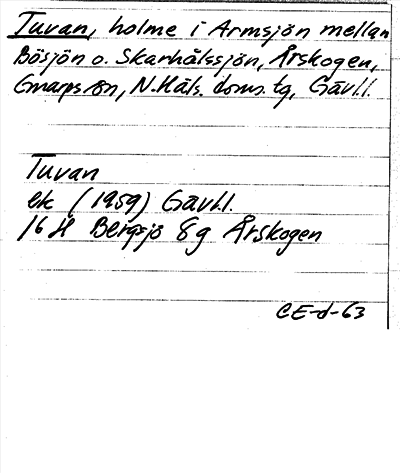 Tuvan, holme i Armsjön mellan
Bösjön o. Skarhålssjön, Årskogen,
Gnarps sn, N.Häls. doms. tg, Gävl.l.
Tuvan
ek (1959) Gävl.l.
16 H Bergsjö 8 g Årskogen
CE-d-63